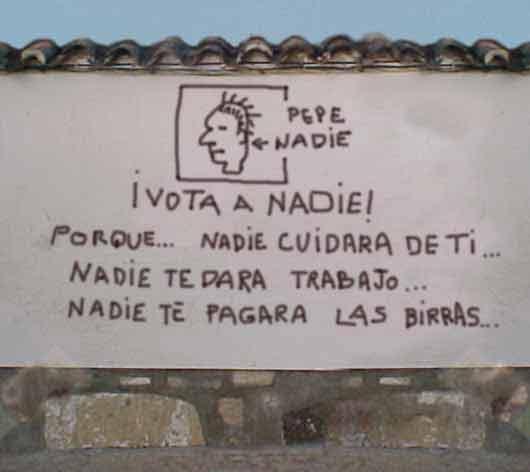 PEPE
← NADIE
¡VOTA A NADIE!
PORQUE... NADIE CUIDARA DE TI...
NADIE TE DARA TRABAJO...
NADIE TE PAGARA LAS BIRRAS...